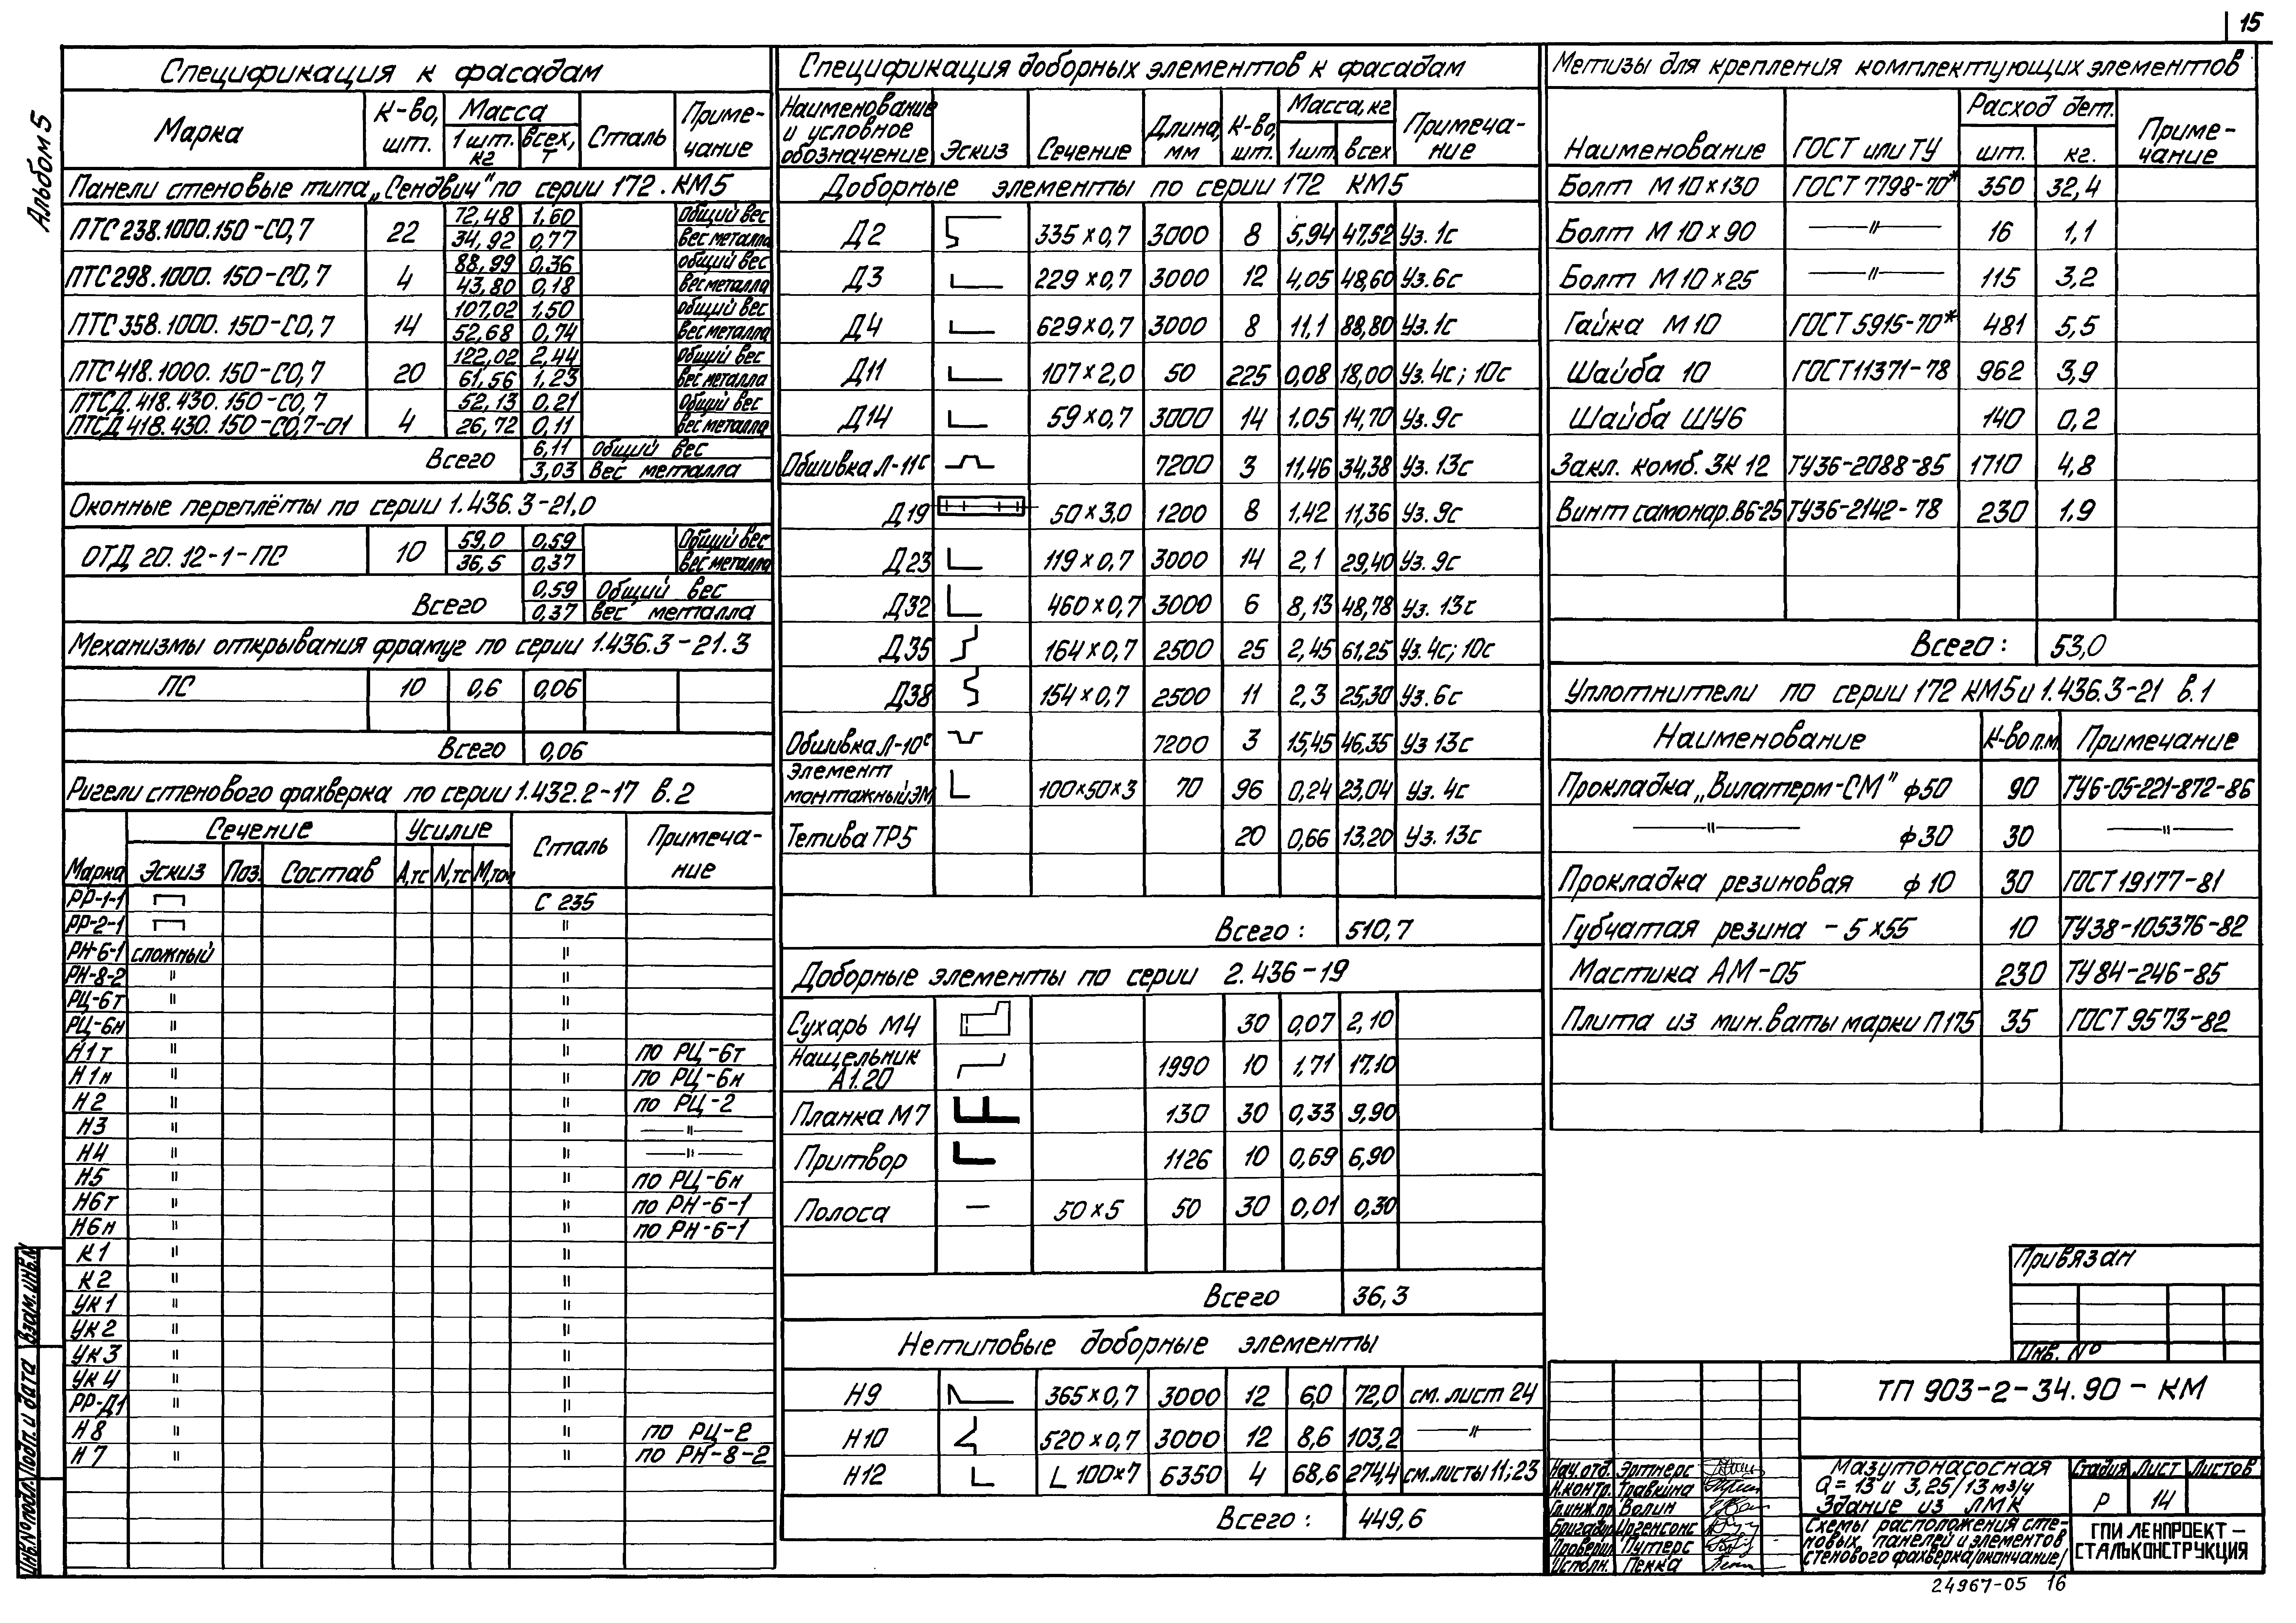 15
Альбом 5
Спецификация к фасадам
Марка К-во, шт. Масса 1 шт. кг всех, т Сталь Приме-чание
Панели стеновые типа „Сендвич" по серии 172.КМ5
ПТС 238.1000.150-С0,7 22 72,48 1,60 Общий вес
34,92 0,77 вес металла
ПТС 298.1000.150-С0,7 4 88,99 0,36 общий вес
43,80 0,18 вес металла
ПТС 358.1000.150-С0,7 14 107,02 1,50 общий вес
52,68 0,74 вес металла
ПТС 418.1000.150-С0,7 20 122,02 2,44 общий вес
61,56 1,23 вес металла
ПТСД.418.430.150-С0,7 4 52,13 0,21 Общий вес
ПТСД 418.430.150-С0,7-01 26,72 0,11 вес металла
Всего 6,11 общий вес
3,03 вес металла
Оконные переплёты по серии 1.436.3-21.0
ОТД 20.12-1-ПС 10 59,0 0,59 Общий вес
36,5 0,37 вес металла
Всего 0,59 Общий вес
0,37 вес металла
Механизмы открывания фрамуг по серии 1.436.3-21.3
ПС 10 0,6 0,06
Всего 0,06
Ригели стенового фахверка по серии 1.432.2-17 в.2
Марка Сечение Эскиз Поз. Состав Усилие А,тс N,тс М,тсм Сталь Примеча-ние
РР-1-1 С 235
РР-2-1 "
РН-6-1 сложный "
РН-8-2 " "
РЦ-6т " "
РЦ-6н " "
Н1т " " по РЦ-6т
Н1н " " по РЦ-6н
Н2 " " по РЦ-2
Н3 " " —"—
Н4 " " —"—
Н5 " " по РЦ-6н
Н6т " " по РН-6-1
Н6н " " по РН-6-1
К1 " "
К2 " "
УК1 " "
УК2 " "
УК3 " "
УК4 " "
РР-Д1 " "
Н8 " " по РЦ-2
Н7 " " по РН-8-2
Спецификация доборных элементов к фасадам
Наименование и условное обозначение Эскиз Сечение Длина, мм К-во, шт. Масса, кг 1шт. всех Примеча-ние
Доборные элементы по серии 172 КМ5
Д2 335×0,7 3000 8 5,94 47,52 Уз. 1с
Д3 229×0,7 3000 12 4,05 48,60 Уз. 6с
Д4 629×0,7 3000 8 11,1 88,80 Уз. 1с
Д11 107×2,0 50 225 0,08 18,00 Уз. 4с; 10с
Д14 59×0,7 3000 14 1,05 14,70 Уз. 9с
Обшивка Л-11с 7200 3 11,46 34,38 Уз. 13с
Д19 50×3,0 1200 8 1,42 11,36 Уз. 9с
Д23 119×0,7 3000 14 2,1 29,40 Уз. 9с
Д32 460×0,7 3000 6 8,13 48,78 Уз. 13с
Д35 164×0,7 2500 25 2,45 61,25 Уз. 4с; 10с
Д38 154×0,7 2500 11 2,3 25,30 Уз. 6с
Обшивка Л-10с 7200 3 15,45 46,35 Уз 13с
Элемент монтажный ЭМ 100×50×3 70 96 0,24 23,04 Уз. 4с
Тетива ТР5 20 0,66 13,20 Уз. 13с
Всего: 510,7
Доборные элементы по серии 2.436-19
Сухарь М4 30 0,07 2,10
Нащельник А1.20 1990 10 1,71 17,10
Планка М7 130 30 0,33 9,90
Притвор 1126 10 0,69 6,90
Полоса 50×5 50 30 0,01 0,30
Всего 36,3
Нетиповые доборные элементы
Н9 365×0,7 3000 12 6,0 72,0 см. лист 24
Н10 520×0,7 3000 12 8,6 103,2 —"—
Н12 L 100×7 6350 4 68,6 274,4 см. листы 11; 23
Всего: 449,6
Метизы для крепления комплектующих элементов
Наименование ГОСТ или ТУ Расход дет. шт. кг. Приме-чание
Болт М10×130 ГОСТ 7798-70* 350 32,4
Болт М10×90 —"— 16 1,1
Болт М10×25 —"— 115 3,2
Гайка М10 ГОСТ 5915-70* 481 5,5
Шайба 10 ГОСТ 11371-78 962 3,9
Шайба ШУ6 140 0,2
Закл. комб. ЗК 12 ТУ36-2088-85 1710 4,8
Винт самонар. В6-25 ТУ36-2142-78 230 1,9
Всего: 53,0
Уплотнители по серии 172 КМ5 и 1.436.3-21 в.1
Наименование К-во п.м. Примечание
Прокладка „Вилатерм-СМ" ф50 90 ТУ6-05-221-872-86
—"— ф30 30 —"—
Прокладка резиновая ф10 30 ГОСТ 19177-81
Губчатая резина - 5×55 10 ТУ38-105376-82
Мастика АМ-05 230 ТУ 84-246-85
Плита из мин.ваты марки П175 35 ГОСТ 9573-82
Привязан
Инв. №
ТП 903-2-34.90-КМ
Нач.отд. Эртнерс
Н.контр. Травкина
Гл.инж.пр Волин
Бригадир Иргенсонс
Проверил Путерс
Исполн. Пекка
Мазутонасосная
Q=13 и 3,25/13 м³/ч
Здание из ЛМК
Стадия Лист Листов
Р 14
Схемы расположения сте-
новых панелей и элементов
стенового фахверка/окончание/
ГПИ ЛЕНПРОЕКТ-
СТАЛЬКОНСТРУКЦИЯ
24967-05 16
Инв.№ подл. Подп. и дата Взам.инв.№